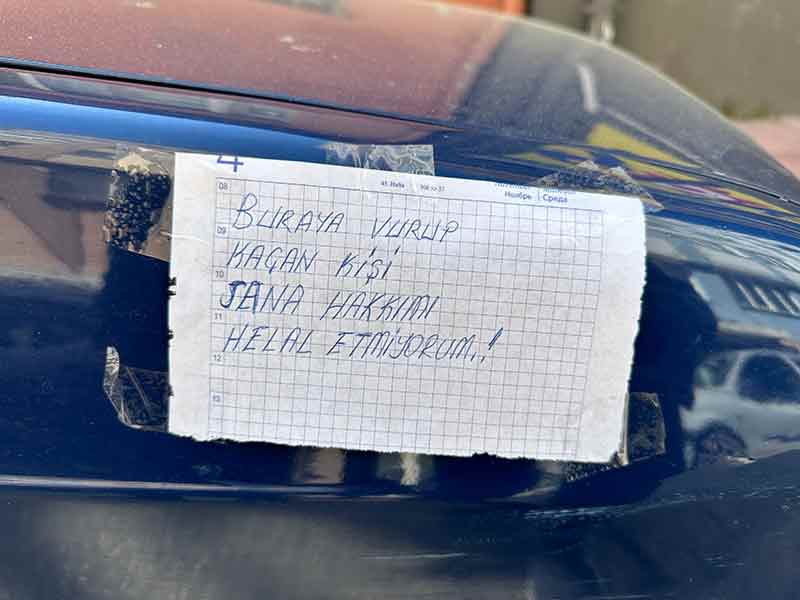 4
45. Hafta
Ноябрь
Среда
08
BURAYA VURUP
09
KAÇAN KİŞİ
10
SANA HAKKIMI
11
HELAL ETMİYORUM..!
12
13